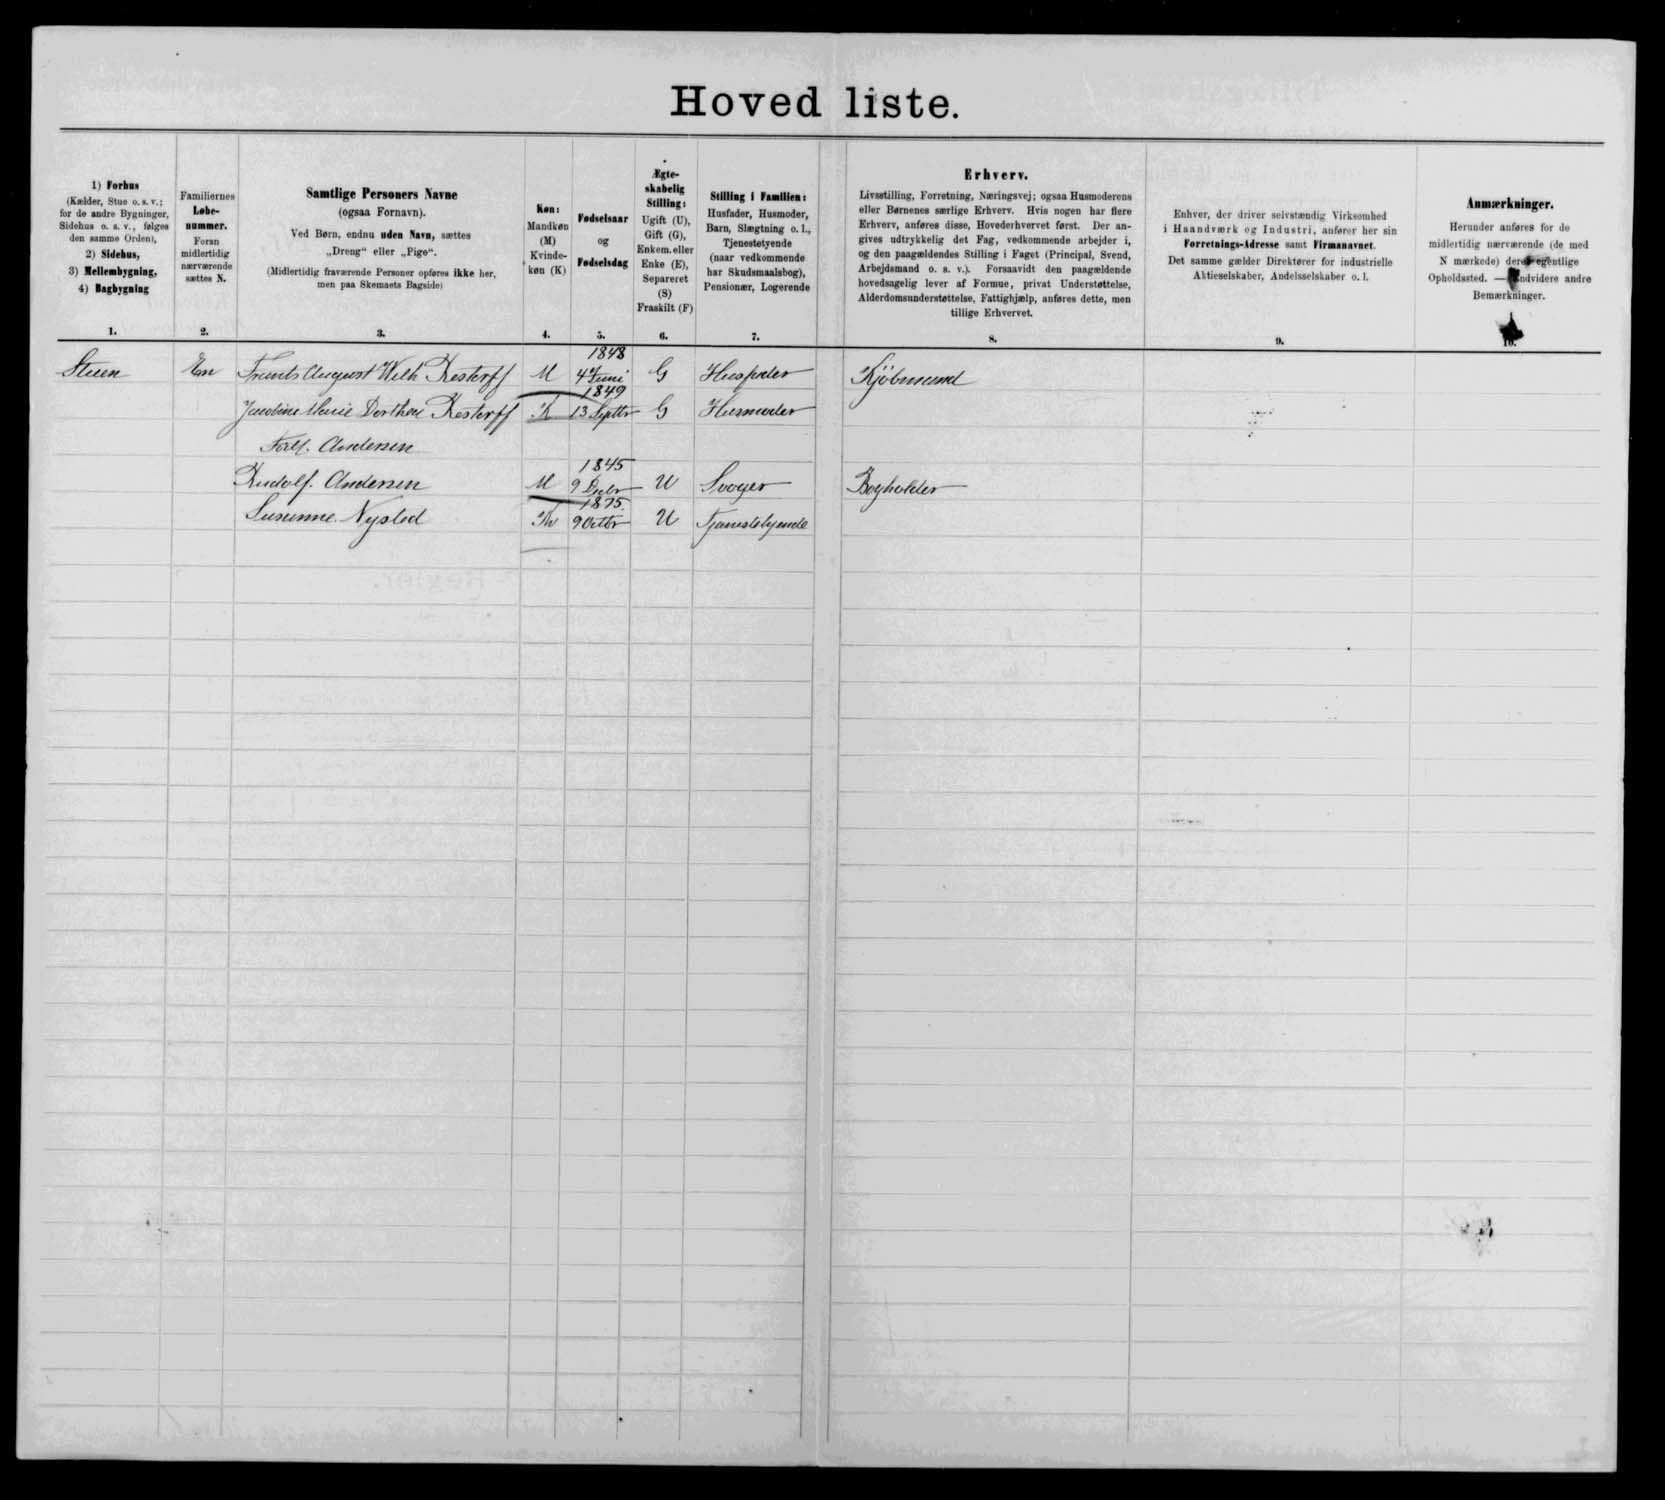 Hovedliste.
1) Forhus
(Kælder, Stue o. s. v.;
for de andre Bygninger,
Sidehus o. s. v., følges
den samme Orden),
2) Sidehus,
3) Mellembygning,
4) Bagbygning
1.
Familiernes
Løbe-
nummer.
Foran
midlertidig
nærværende
sættes N.
2.
Samtlige Personers Navne
(ogsaa Fornavn).
Ved Børn, endnu uden Navn, sættes
„Dreng“ eller „Pige“.
(Midlertidig fraværende Personer opføres ikke her,
men paa Skemaets Bagside)
3.
Køn:
Mandkøn
(M)
Kvinde-
køn (K)
4.
Fødselsaar
og
Fødselsdag
5.
Ægte-
skabelig
Stilling:
Ugift (U),
Gift (G),
Enkem. eller
Enke (E),
Separeret
(S)
Fraskilt (F)
6.
Stilling i Familien:
Husfader, Husmoder,
Barn, Slægtning o. l.,
Tjenestetyende
(naar vedkommende
har Skudsmaalsbog),
Pensionær, Logerende
7.
Erhverv.
Livsstilling, Forretning, Næringsvej; ogsaa Husmoderens
eller Børnenes særlige Erhverv. Hvis nogen har flere
Erhverv, anføres disse, Hovederhvervet først. Der an-
gives udtrykkelig det Fag, vedkommende arbejder i,
og den paagældendes Stilling i Faget (Principal, Svend,
Arbejdsmand o. s. v.). Forsaavidt den paagældende
hovedsagelig lever af Formue, privat Understøttelse,
Alderdomsunderstøttelse, Fattighjælp, anføres dette, men
tillige Erhvervet.
8.
Enhver, der driver selvstændig Virksomhed
i Haandværk og Industri, anfører her sin
Forretnings-Adresse samt Firmanavnet.
Det samme gælder Direktører for industrielle
Aktieselskaber, Andelsselskaber o. l.
9.
Anmærkninger.
Herunder anføres for de
midlertidig nærværende (de med
N mærkede) deres egentlige
Opholdssted. — Endvidere andre
Bemærkninger.
10.
1848
Stuen En Frants August Wilh Restorff M 4 Juni G Husfader Kjøbmand
1849
Jacobine Marie Dorthea Restorff K 13 Septbr G Husmoder
Født Andersen
1845
Rudolf. Andersen M 9 Debr U Svoger Bogholder
1875
Susanne Nysted Kv 9 Octbr U Tjenestetyende